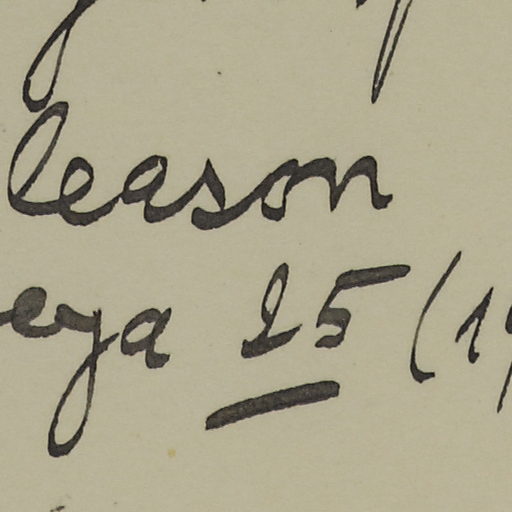 leason
eya 25 (19